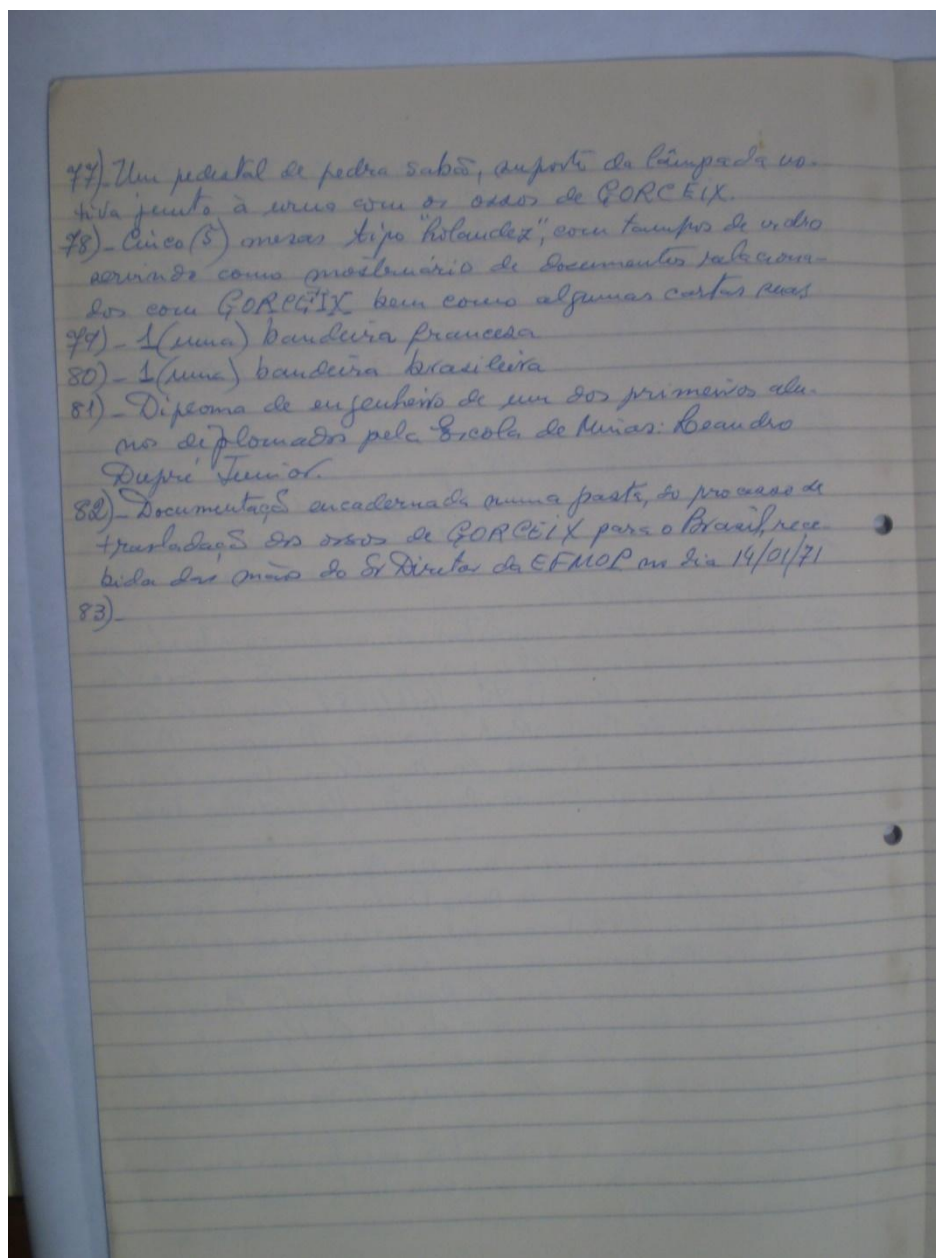 77)- Um pedestal de pedra sabão, suporte da lâmpada vo-
tiva junto à urna com os ossos de GORCEIX.
78)- Cinco (5) mesas tipo "holandez", com tampos de vidro
servindo como mostruário de documentos relaciona-
dos com GORCEIX bem como algumas cartas suas
79)- 1 (uma) bandeira francesa
80)- 1 (uma) bandeira brasileira
81)- Diploma de engenheiro de um dos primeiros alu-
nos diplomados pela Escola de Minas: Leandro
Dupré Junior.
82)- Documentaçõ encadernada numa pasta, do processo de
trasladaçõ dos ossos de GORCEIX para o Brasil, rece-
bida das mãos do Sr Diretor da EFMOP no dia 14/01/71
83)-